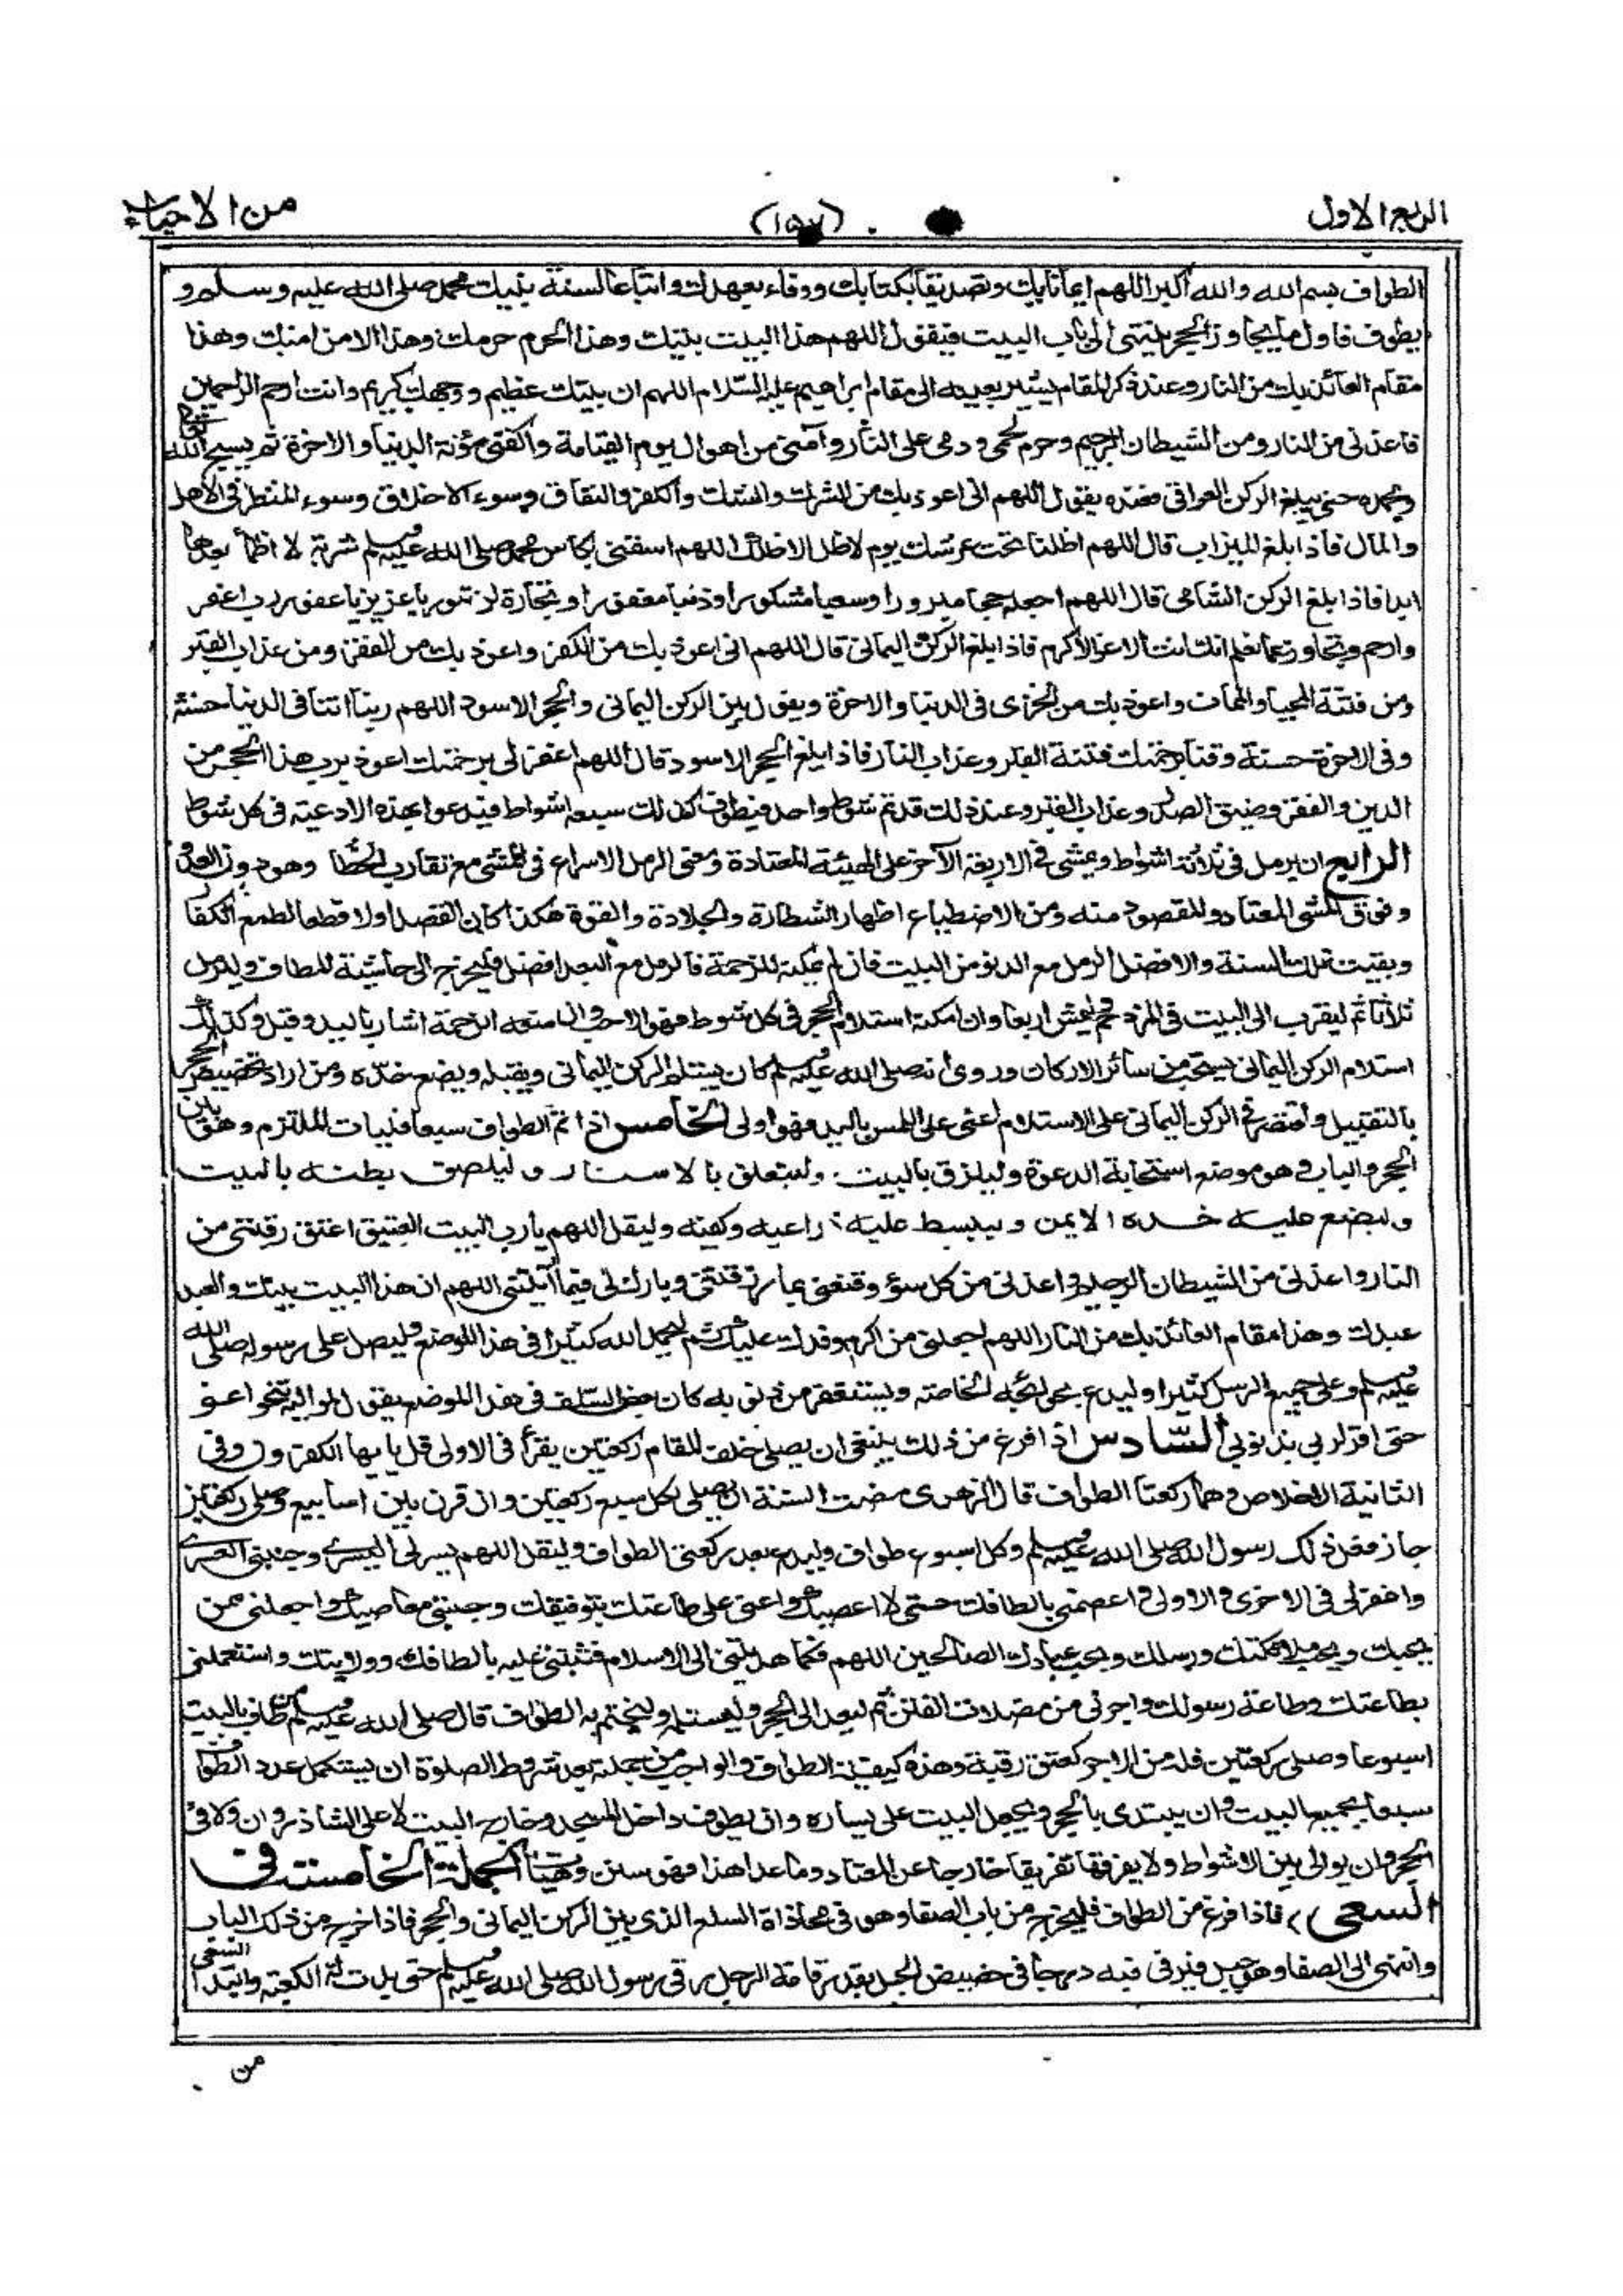 الربع الاول (١٥٧) من الاحياء
الطواف بسم الله والله اكبر اللهم ايمانا بك وتصديقا بكتابك ووفاء بعهدك واتباعا لسنة نبيك محمد صلى الله عليه وسلم و
يطوف فاول ما يجاوز الحجر ينتهى الى باب البيت فيقول اللهم هذا البيت بيتك وهذا الحرم حرمك وهذا الامن امنك وهذا
مقام العائذ بك من النار وعند ذكر المقام يشير بعينه الى مقام ابراهيم عليه السلام اللهم ان بيتك عظيم ووجهك كريم وانت ارحم الراحمين
فاعذنى من النار ومن الشيطان الرجيم وحرم لحمى ودمى على النار وآمنى من اهوال يوم القيامة واكفنى مؤنة الدنيا والاخرة ثم يسبح الله تعالى
وبحمده حتى يبلغ الركن العراقى فعنده يقول اللهم انى اعوذ بك من الشرك والشك والكفر والنفاق وسوء الاخلاق وسوء المنظر فى الاهل
والمال فاذا بلغ الميزاب قال اللهم اظلنا تحت عرشك يوم لا ظل الا ظلك اللهم اسقنى بكاس محمد صلى الله عليه وسلم شربة لا اظمأ بعدها
ابدا فاذا بلغ الركن الشامى قال اللهم اجعله حجا مبرورا وسعيا مشكورا وذنبا مغفورا وتجارة لن تبور يا عزيز يا غفور رب اغفر
وارحم وتجاوز عما تعلم انك انت الاعز الاكرم فاذا بلغ الركن اليمانى قال اللهم انى اعوذ بك من الكفر واعوذ بك من الفقر ومن عذاب القبر
ومن فتنة المحيا والممات واعوذ بك من الخزى فى الدنيا والاخرة ويقول بين الركن اليمانى والحجر الاسود اللهم ربنا اتنا فى الدنيا حسنة
وفى الاخرة حسنة وقنا برحمتك فتنة القبر وعذاب النار فاذا بلغ الحجر الاسود قال اللهم اغفر لى برحمتك اعوذ برب هذا الحجر من
الدين والفقر وضيق الصدر وعذاب القبر وعند ذلك قد تم شوط واحد فيطوف كذلك سبعة اشواط فيدعو بهذه الادعية فى كل شوط
الرابع ان يرمل فى ثلاثة اشواط ويمشى فى الاربعة الآخر على الهيئة المعتادة ومعنى الرمل الاسراع فى المشى مع تقارب الخطأ وهو دون العدو
وفوق المشى المعتاد والمقصود منه ومن الاضطباع اظهار الشطارة والجلادة والقوة هكذا كان القصد اولا قطعا لطمع الكفا
وبقيت تلك السنة والافضل الرمل مع الدنو من البيت فان لم يمكنه للزحمة فالرمل مع البعد افضل فليخرج الى حاشية المطاف وليرمل
ثلاثا ثم ليقرب الى البيت فى المزدحم وليمش اربعا وان امكنه استلام الحجر فى كل شوط فهو الاحب وان منعه الزحمة اشار باليد وقبل وكذلك
استلام الركن اليمانى يستحب من سائر الاركان وروى انه صلى الله عليه وسلم كان يستلم الركن اليمانى ويقبله ويضع خده ومن اراد تخصيص الحجر
بالتقبيل واقتصر فى الركن اليمانى على الاستلام اعنى على اللمس باليد فهو اولى الخامس اذا تم الطواف سبعا فليات الملتزم وهو بين
الحجر والباب وهو موضع استجابة الدعوة وليلزق بالبيت وليتعلق بالاستار وليلصق بطنه بالبيت
وليضع عليه خده الايمن وليبسط عليه ذراعيه وكفيه وليقل اللهم يا رب البيت العتيق اعتق رقبتى من
النار واعذنى من الشيطان الرجيم واعذنى من كل سوء وقنعنى بما رزقتنى وبارك لى فيما آتيتنى اللهم ان هذا البيت بيتك والعبد
عبدك وهذا مقام العائذ بك من النار اللهم اجعلنى من اكرم وفدك عليك ثم ليحمد الله كثيرا فى هذا الموضع وليصل على رسوله صلى الله
عليه وسلم وعلى جميع الرسل كثيرا وليدع بحوائجه الخاصة وليستغفر من ذنوبه كان بعض السلف فى هذا الموضع يقول لمواليه تنحوا عنى
حتى اقر لربى بذنوبى السادس اذا فرغ من ذلك ينبغى ان يصلى خلف المقام ركعتين يقرأ فى الاولى قل يا يها الكفرون وفى
الثانية الاخلاص وهما ركعتا الطواف قال الزهرى مضت السنة ان يصلى لكل سبع ركعتين وان قرن بين اسابيع وصلى ركعتين
جاز فعل ذلك رسول الله صلى الله عليه وسلم وكل اسبوع طواف وليدع بعد ركعتى الطواف وليقل اللهم يسر لى اليسرى وجنبنى العسرى
واغفر لى فى الاخرى والاولى واعصمنى بالطافك حتى لا اعصيك واعنى على طاعتك بتوفيقك وجنبنى معاصيك واجعلنى من
يحبك ويحب ملائكتك ورسلك ويحب عبادك الصالحين اللهم فكما هديتنى الى الاسلام فثبتنى عليه بالطافك وولايتك واستعملنى
بطاعتك وطاعة رسولك واجرنى من مضلات الفتن ثم ليعد الى الحجر وليستلمه وليختم به الطواف قال صلى الله عليه وسلم من طاف بالبيت
اسبوعا وصلى ركعتين فله من الاجر كعتق رقبة وهذه كيفية الطواف والواجب من جملته بعد شروط الصلوة ان يستكمل عدد الطواف
سبعا بجميع البيت وان يبتدى بالحجر ويجعل البيت على يساره وان يطوف داخل المسجد وخارج البيت لا على الشاذروان ولا فى
الحجر وان يوالى بين الاشواط ولا يفرقها تفريقا خارجا عن المعتاد وما عدا هذا فهو سنن وهيئات الجملة الخامسة فى
السعى فاذا فرغ من الطواف فليخرج من باب الصفا وهو فى محاذاة السلع الذى بين الركن اليمانى والحجر فاذا خرج من ذلك الباب
وانتهى الى الصفا وهو جبل فيرقى فيه درجا فى حضيض الجبل بقدر قامة الرجل رقى رسول الله صلى الله عليه وسلم حتى بدت له الكعبة وابتدأ السعى
من